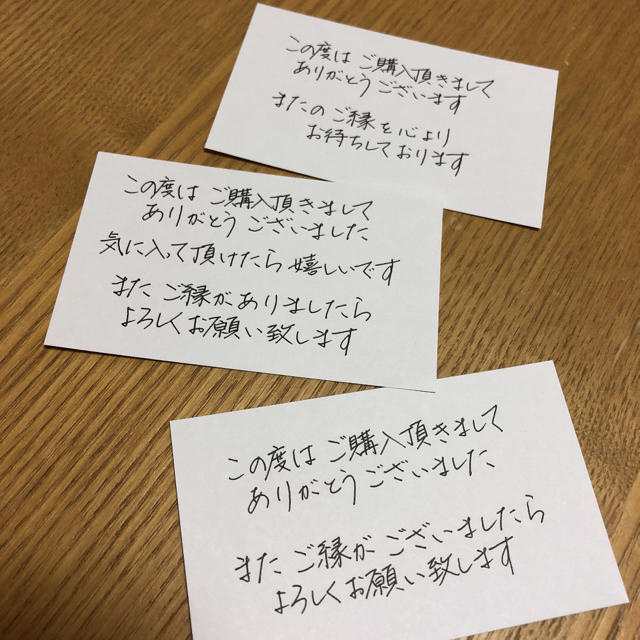 この度は ご購入頂きまして
ありがとうございます
またの ご縁を心より
お待ちしております
この度は ご購入頂きまして
ありがとう ございました
気に入って頂けたら 嬉しいです
また ご縁がありましたら
よろしくお願い致します
この度は ご購入頂きまして
ありがとうございました
また ご縁が ございましたら
よろしくお願い致します